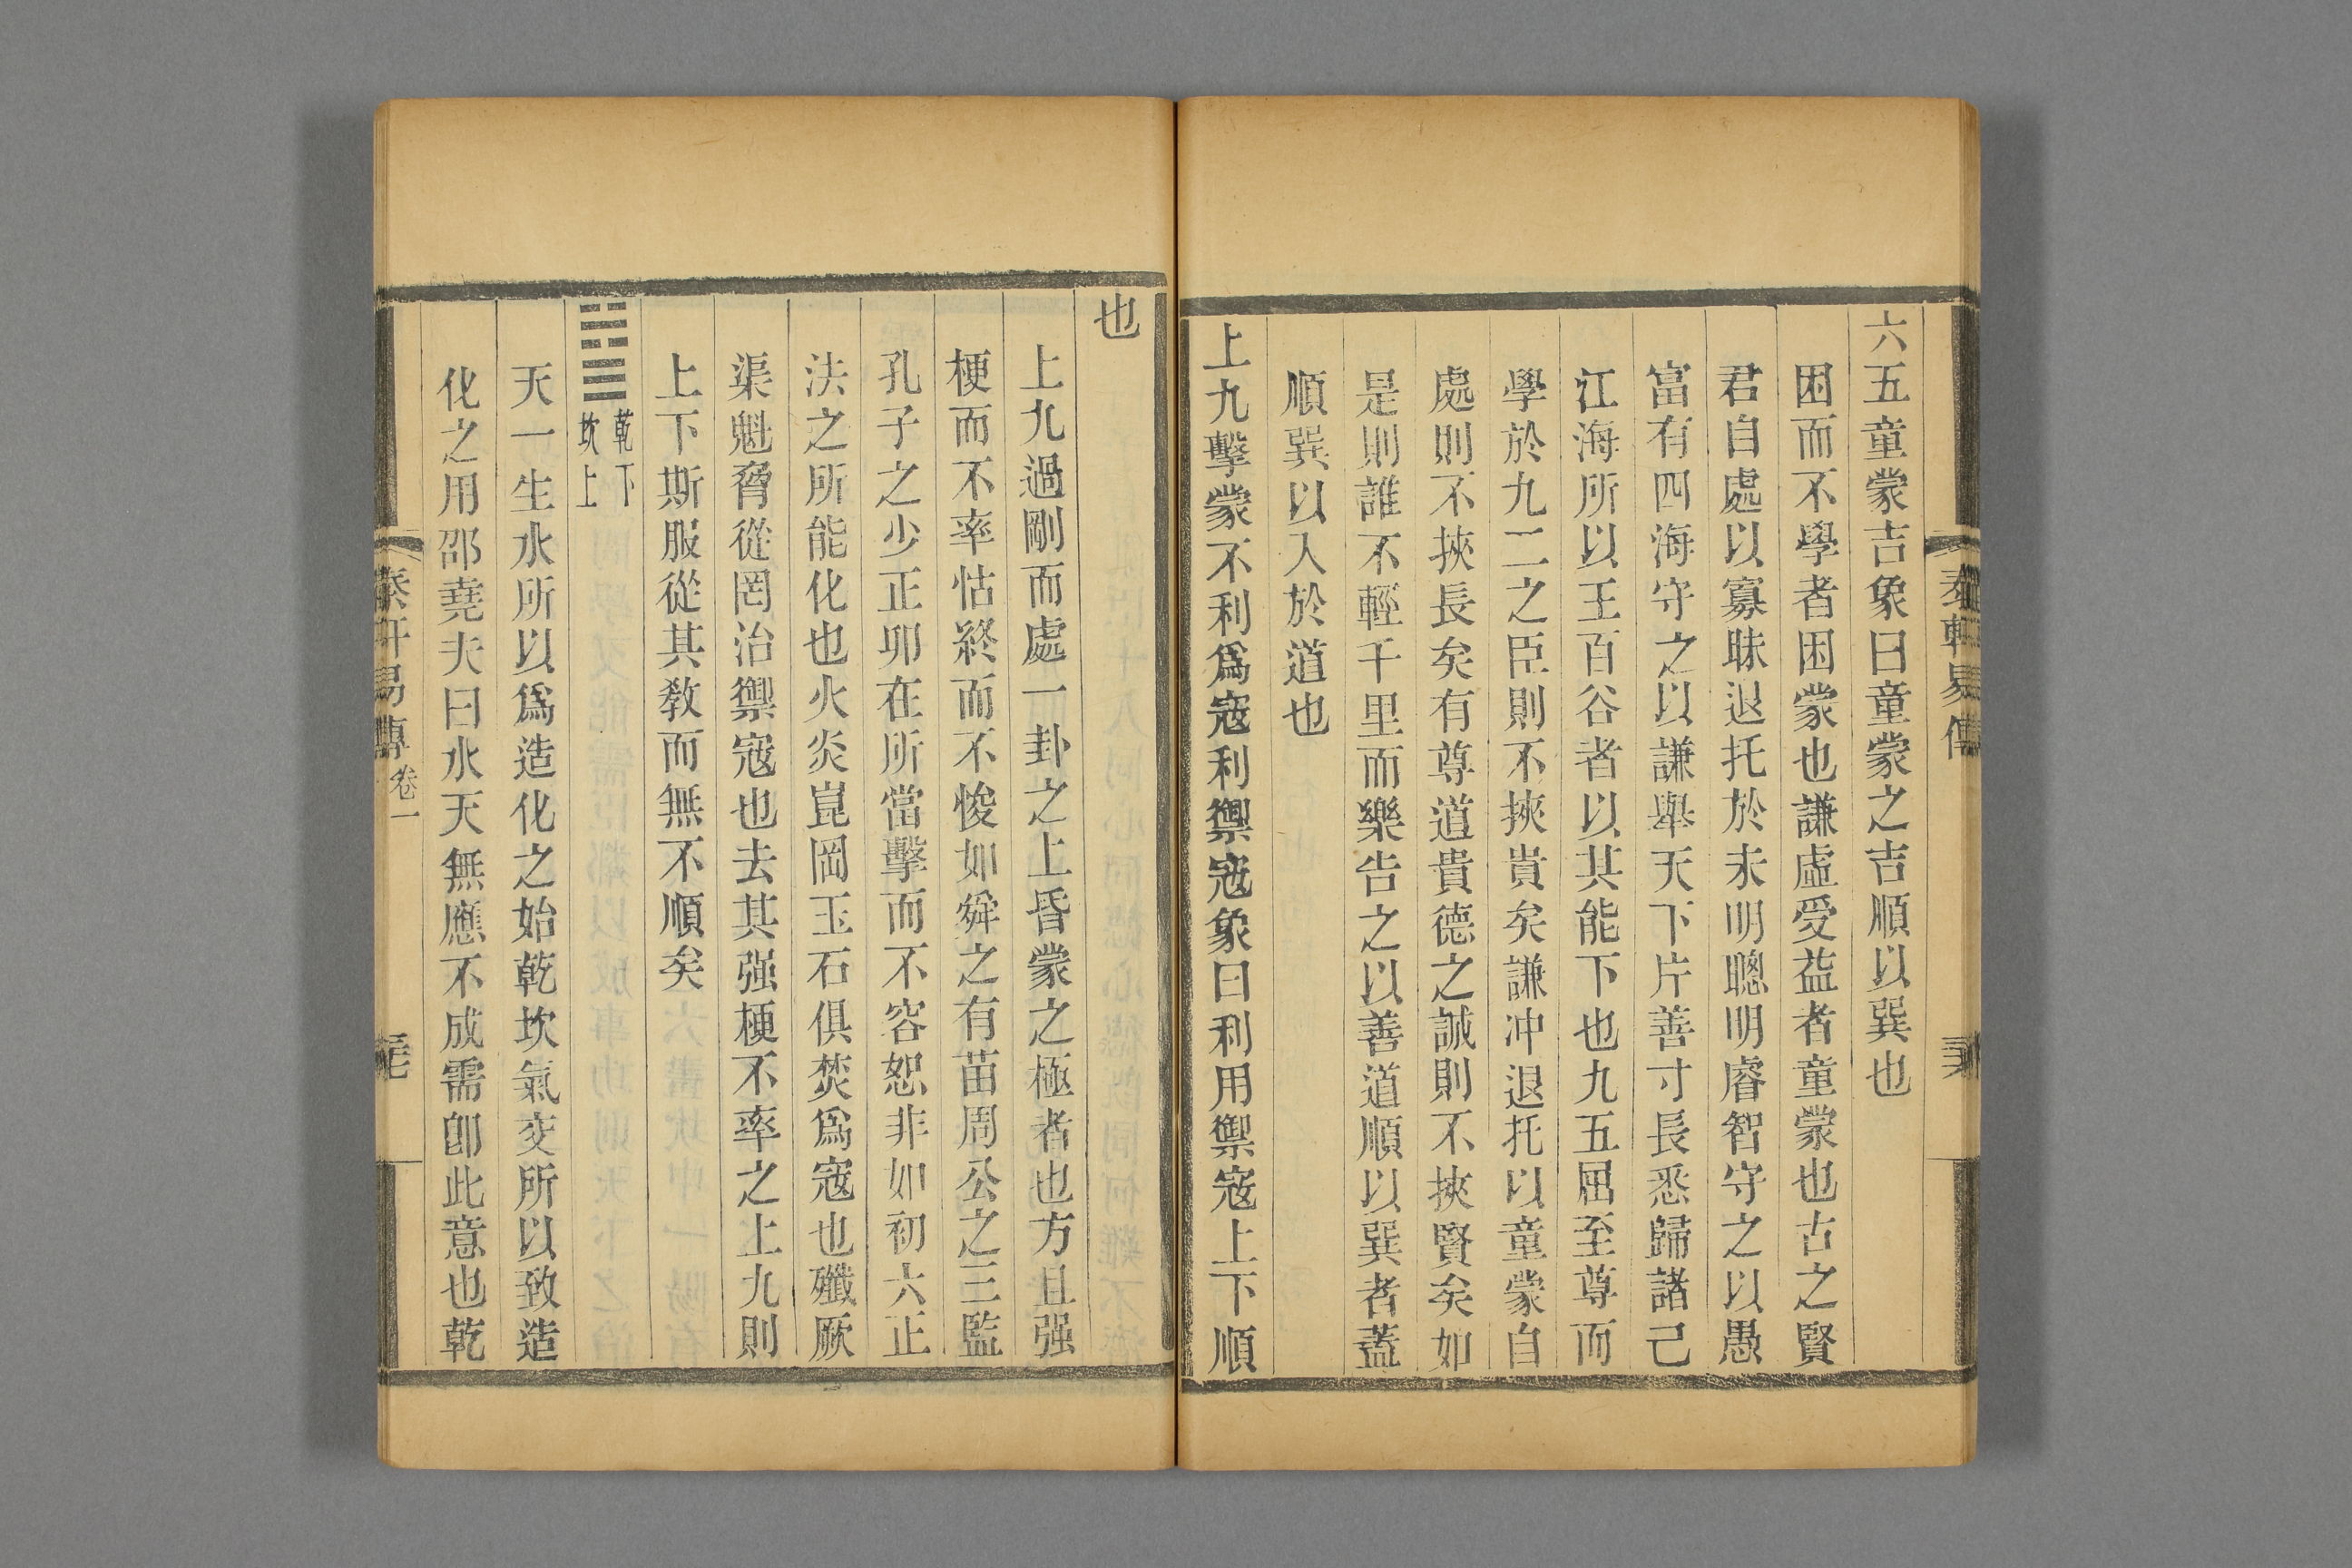 六五童蒙吉象曰童蒙之吉順以巽也
困而不學者困蒙也謙虛受益者童蒙也古之賢
君自處以寡昧退托於未明聰明睿智守之以愚
富有四海守之以謙舉天下片善寸長悉歸諸己
江海所以王百谷者以其能下也九五屈至尊而
學於九二之臣則不挾貴矣謙冲退托以童蒙自
處則不挾長矣有尊道貴德之誠則不挾賢矣如
是則誰不輕千里而樂告之以善道順以巽者蓋
順巽以入於道也
上九擊蒙不利爲寇利禦寇象曰利用禦寇上下順
也
上九過剛而處一卦之上昏蒙之極者也方且强
梗而不率怙終而不悛如舜之有苗周公之三監
孔子之少正卯在所當擊而不容恕非如初六正
法之所能化也火炎崑岡玉石俱焚爲寇也殲厥
渠魁脅從罔治禦寇也去其强梗不率之上九則
上下斯服從其敎而無不順矣
䷄乾下
坎上
天一生水所以爲造化之始乾坎氣交所以致造
化之用邵堯夫曰水天無應不成需卽此意也乾
易傳
卷一